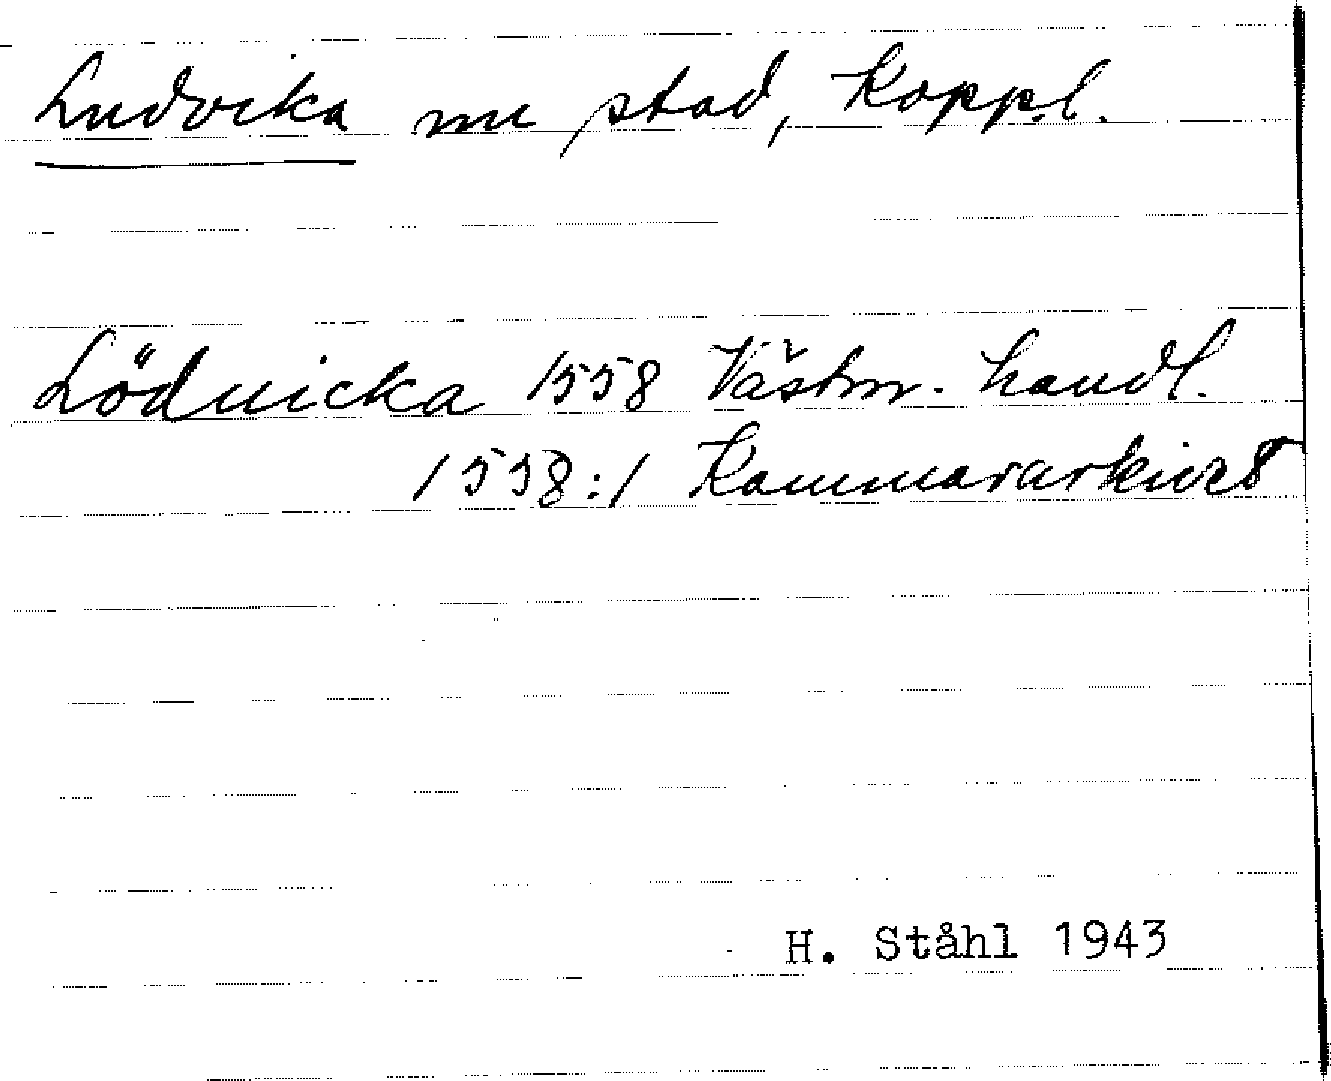 Ludvika nu stad, Koppl.
Löduicka 1558 Västm. handl.
1558:1 Kammararkivet
H. Ståhl 1943